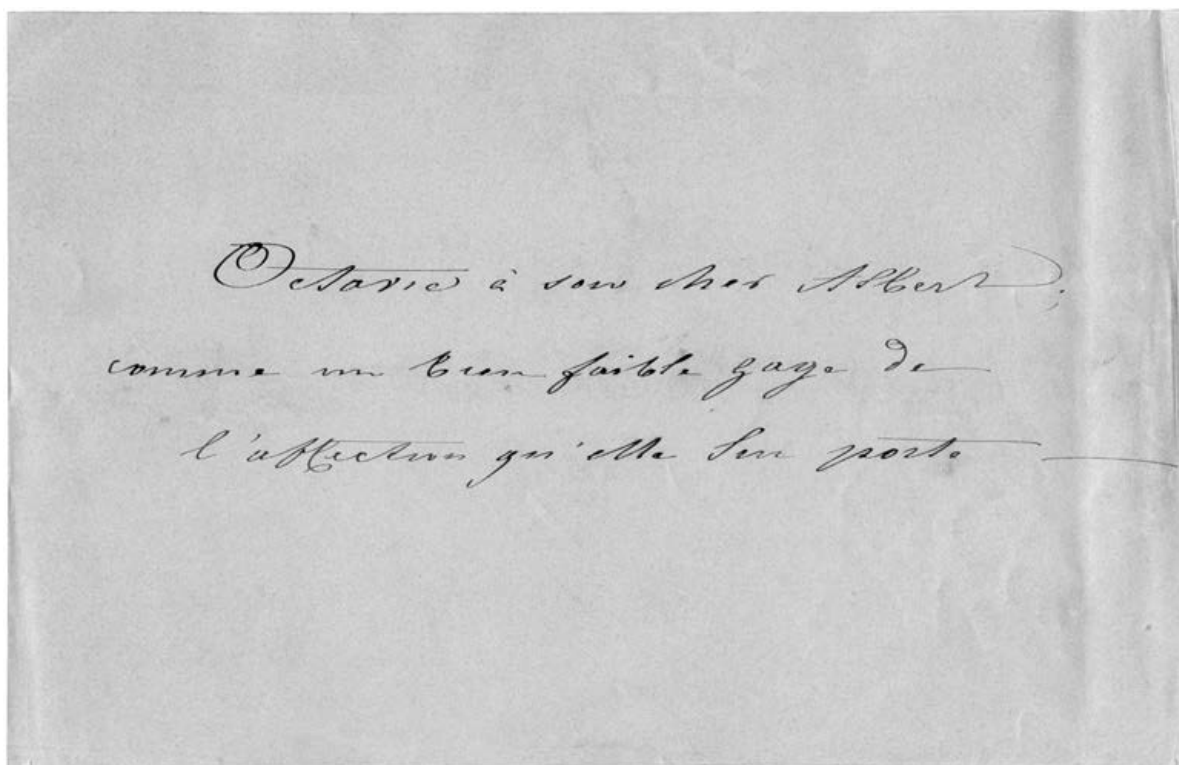 Octavie à son cher Albert ;
comme un bien faible gage de
l'affection qu'elle lui porte —